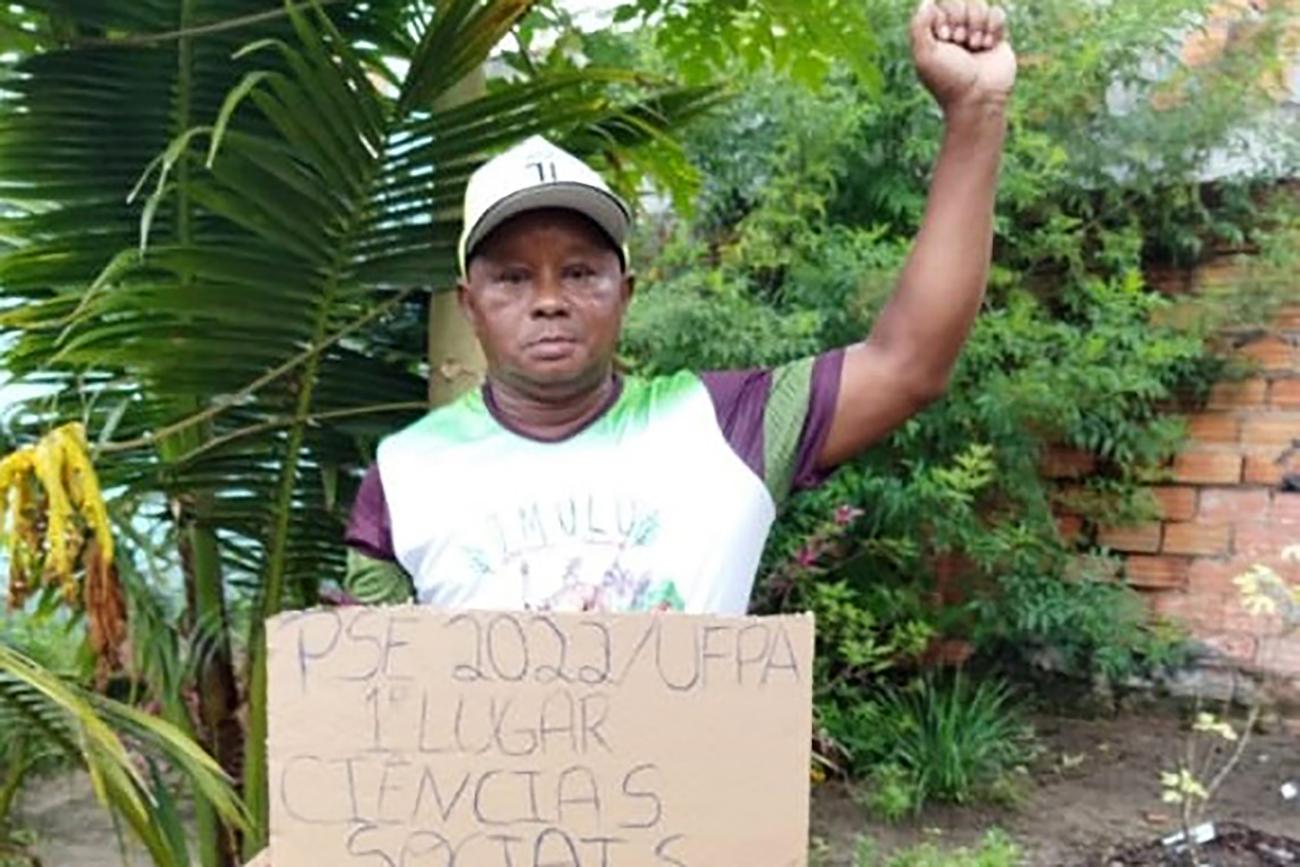 IMULU
PSE 2022/UFPA
1º LUGAR
CIÊNCIAS
SOCIAIS